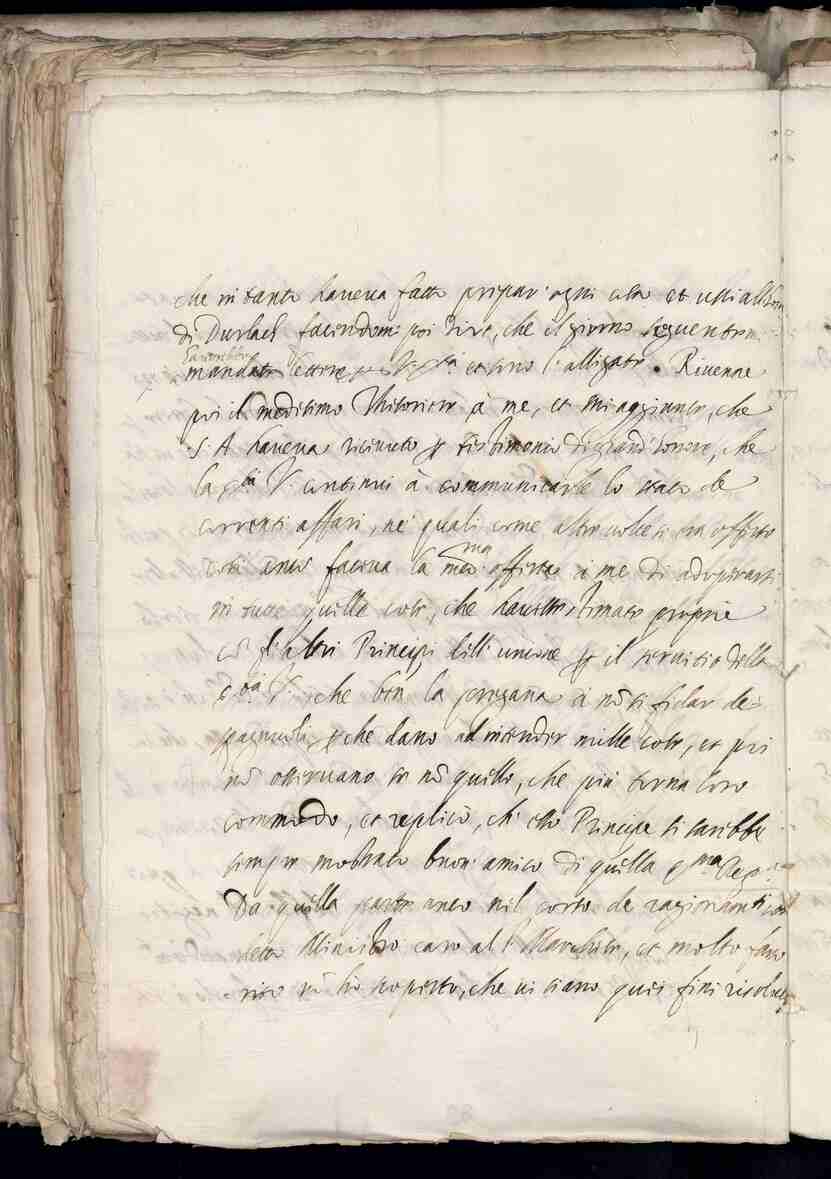 che intanto haueua fatto prepar. ogni cosa et usci all
di Durlach facendom. poi dire, che il giorno seguente m.
hauerebbe
mandato lettere V. et sono l'alligate. Riuenne
poi il medesimo Ministro à me, et mi aggiunse, che
S. A. haueua riceuuto p testimonio di grand' honore, che
la V. continui à communicarle lo stato de
correnti affari, ne quali come altre uolte si era offerto
così anco faceua la med.ma offerta à me di adoprarsi
in tutte quelle cose, che hauesse stimate proprie
co gl'altri Principi dell' unione p il seruitio della
V. che ben la pregaua à nõ si fidar de
spagnuoli, che dano ad intender mille cose, et poi
nõ osseruano se nõ quello, che più torna loro
commodo, et replicò, ch' esso Principe si sarebbe
sempre mostrato buon' amico di quella Rep.ca
Da quella parte anco nel corso de ragionam.ti con
detto Ministro caro al S. Marchese, et molto fauo
rito hò scoperto, che ui siano quei fini risoluti